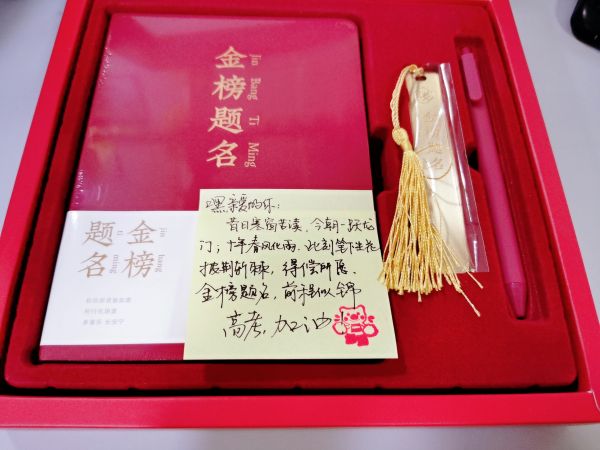 金榜题名
Jin Bang Ti Ming
金榜
题名
jin bang
ti ming
所行化坦途
多喜乐 长安宁
嘿亲爱的你：
昔日寒窗苦读，今朝一跃龙
门；十年春风化雨，此刻笔下生花
披荆斩棘，得偿所愿.
金榜题名，前程似锦
高考，加油！